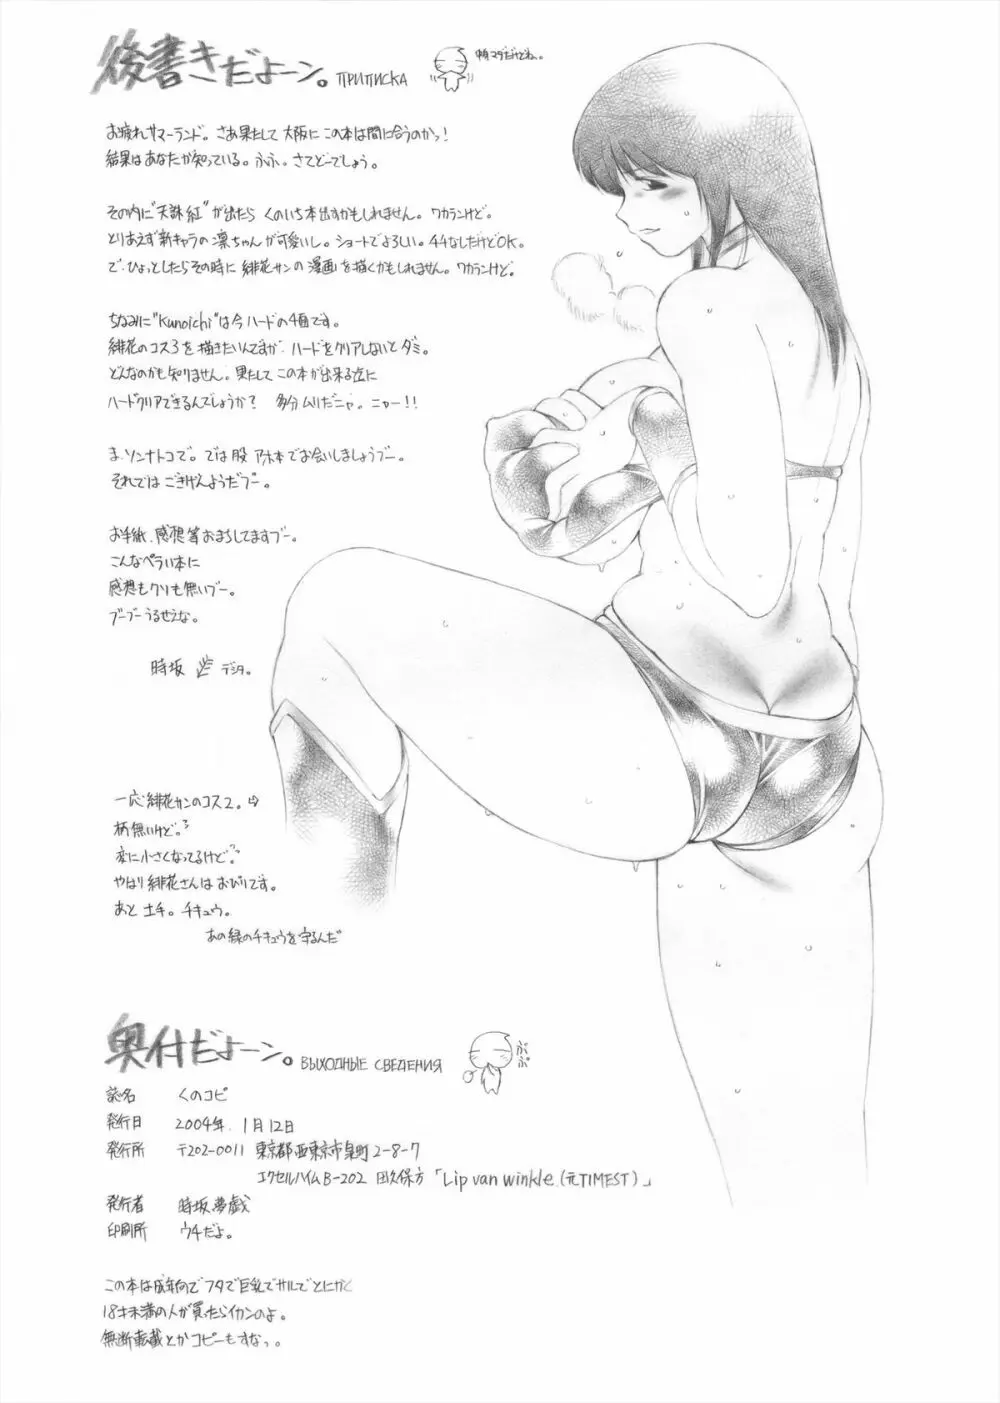 後書きだよーン。ПРИПИСКА
お疲れサマーランド。さあ果たして大阪にこの本は間に合うのかっ!
結果はあなたが知っている。ふふ。さてどーでしょう。
その内に"天誅紅"が出たらくのいち本出すかもしれません。ワカランけど。
とりあえず新キャラの凛ちゃんが可愛いし。ショートでよろしい。チチなしだけどOK。
で、ひょっとしたらその時に緋花サンの漫画を描くかもしれません。ワカランけど。
ちなみに"Kunoichi"は今ハードの4面です。
緋花のコス3を描きたいんですが、ハードをクリアしないとダミ。
どんなのかも知りません。果たしてこの本が出来る迄に
ハードクリアできるんでしょうか? 多分ムリだニャ。ニャー!!
ま、ソンナトコで。では股 アホ本でお会いしましょうブー。
それではごきげんようだブー。
お手紙、感想等おまちしてますブー。
こんなペラい本に
感想もクソも無いブー。
ブーブーうるせえな。
時坂 デシタ。
一応緋花サンのコス2。⇨
柄無いけど。
変に小さくなってるけど。
やはり緋花さんはおびりです。
あと土手。チキュウ。
あの緑のチキュウを守るんだ
奥付だよーン。ВЫХОДНЫЕ СВЕДЕНИЯ
ぷぷ
誌名 くのコピ
発行日 2004年.1月12日
発行所 〒202-0011 東京都西東京市泉町2-8-7
エクセルハイムB-202 田久保方「Lip van winkle.(元TIMEST)」
発行者 時坂夢戯
印刷所 ウチだよ。
この本は成年向でフタで巨乳でサルでとにかく
18才未満の人が買ったらイカンのよ。
無断転載とかコピーもすなっ。